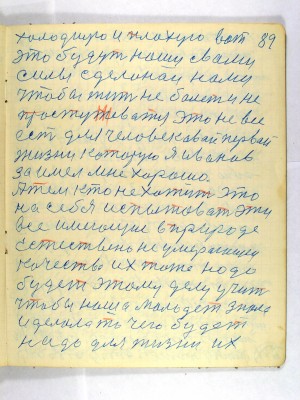 холодную и плохую вот 89
это будут нашу свами
силы сделонаи нами
чтобы жит не болет и не
простуживатся Это не все
ест для человековай первай
жизни которую я иванов
заимел мне хорошо.
А тем кто не хотит это
на себя испытоват эти
все имеющие в природе
сетествено не умерающи
качества их тоже надо
будет этому делу учит
чтобы наша молодеж знала
и делала то чего будет
надо для жизни их